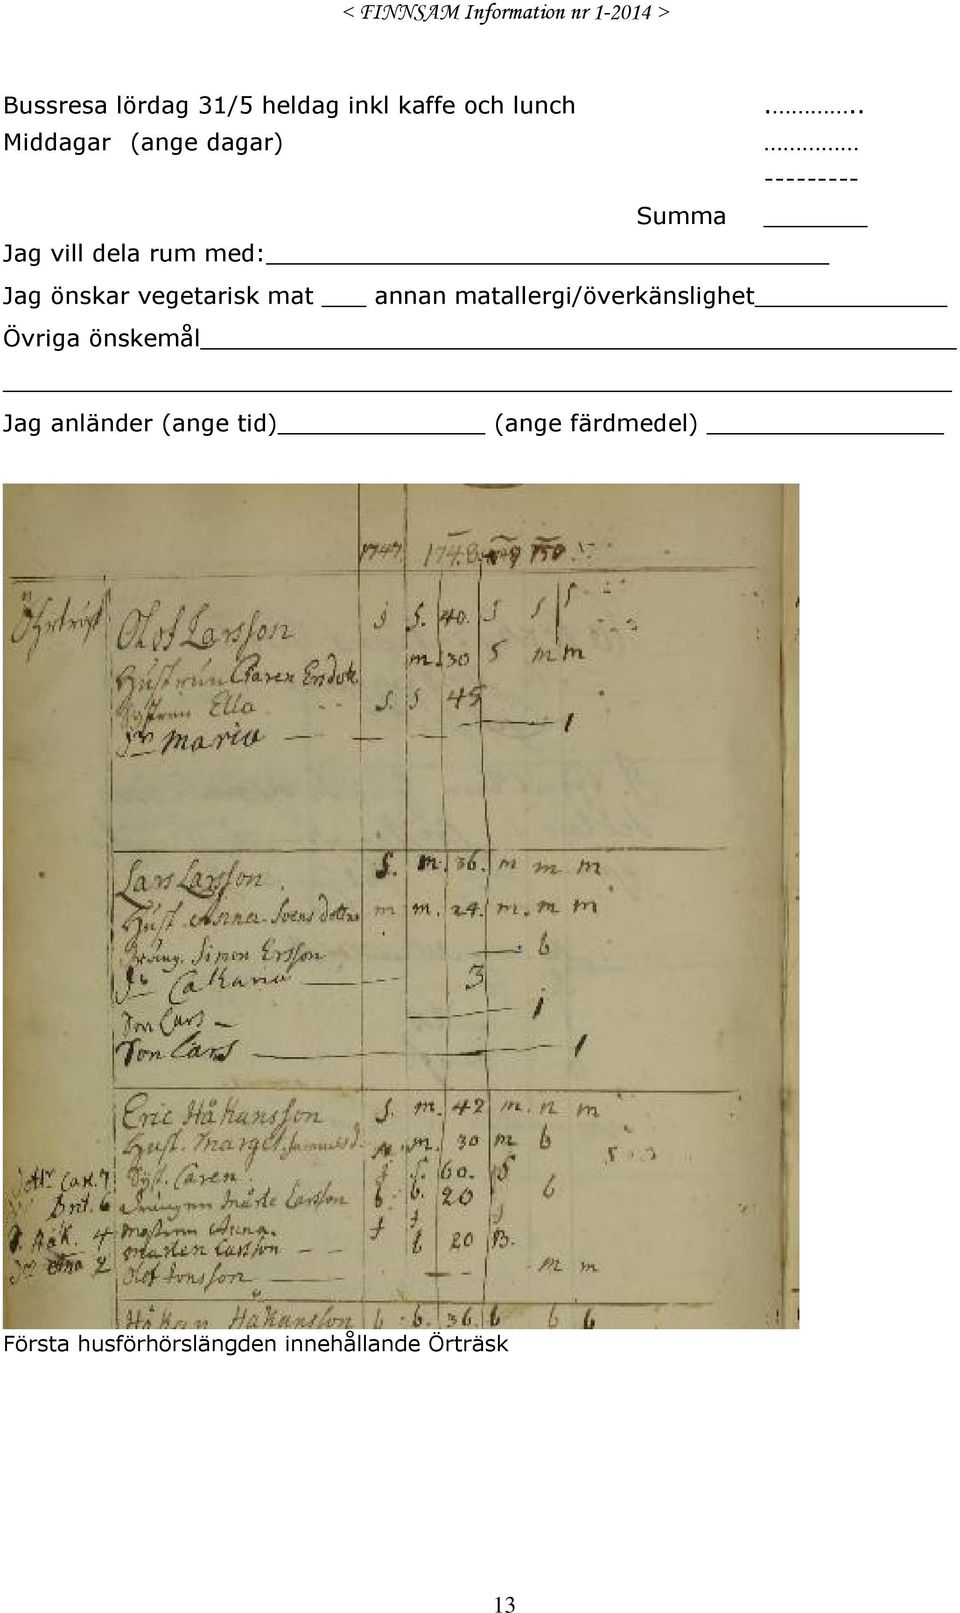 < FINNSAM Information nr 1-2014 >
Bussresa lördag 31/5 heldag inkl kaffe och lunch ……………..
Middagar (ange dagar) ……………
---------
Summa _______
Jag vill dela rum med:______________________________________
Jag önskar vegetarisk mat ___ annan matallergi/överkänslighet_____________
Övriga önskemål___________________________________________________
________________________________________________________________
Jag anländer (ange tid)______________ (ange färdmedel) ________________
1747 1748. 1750
Olof Larsson j S. 40. S S S
Hustrun Caren Ersdotr m. 30 S m m
Systren Ella S. S 45
maria — — — — 1
Lars Larsson. S. m. 36. m m m
Hust. Anna Svensdotter m m. 24. m. m m
dräng. Simon Ersson — 6
Cahana — 3
Son Lars — 1
Son Lars — 1
Eric Håkansson S. m. 42 m. n m
Hust. Marget. Samuelsd. m. 30 m 6
Car. 7 Syst. Caren. S. 60. S
Brit. 6 Larsson 6. 6. 20 6
Håk. 4 Anna.
2 Marten Larsson — — 6 20 B.
Olof Jonsson — m m
Håkan Håkansson 6 6. 36. 6 6 6
Första husförhörslängden innehållande Örträsk
13